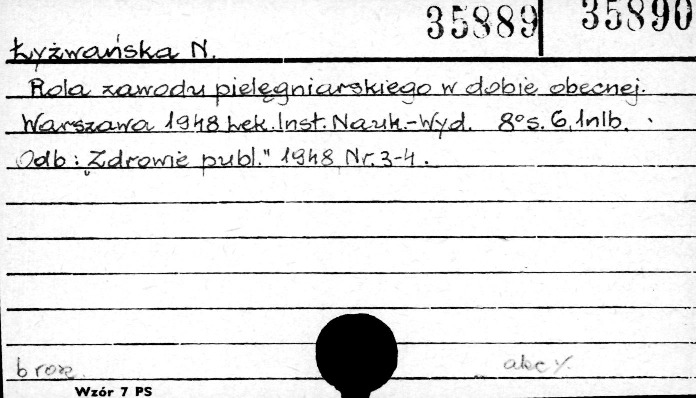 35889 35890
Łyżwańska N.
Rola zawodu pielęgniarskiego w dobie obecnej.
Warszawa 1948 Lek. Inst. Nauk.-Wyd. 8° s. 6, 1nlb.
Odb: "Zdrowie publ." 1948 Nr. 3-4.
Wzór 7 PS